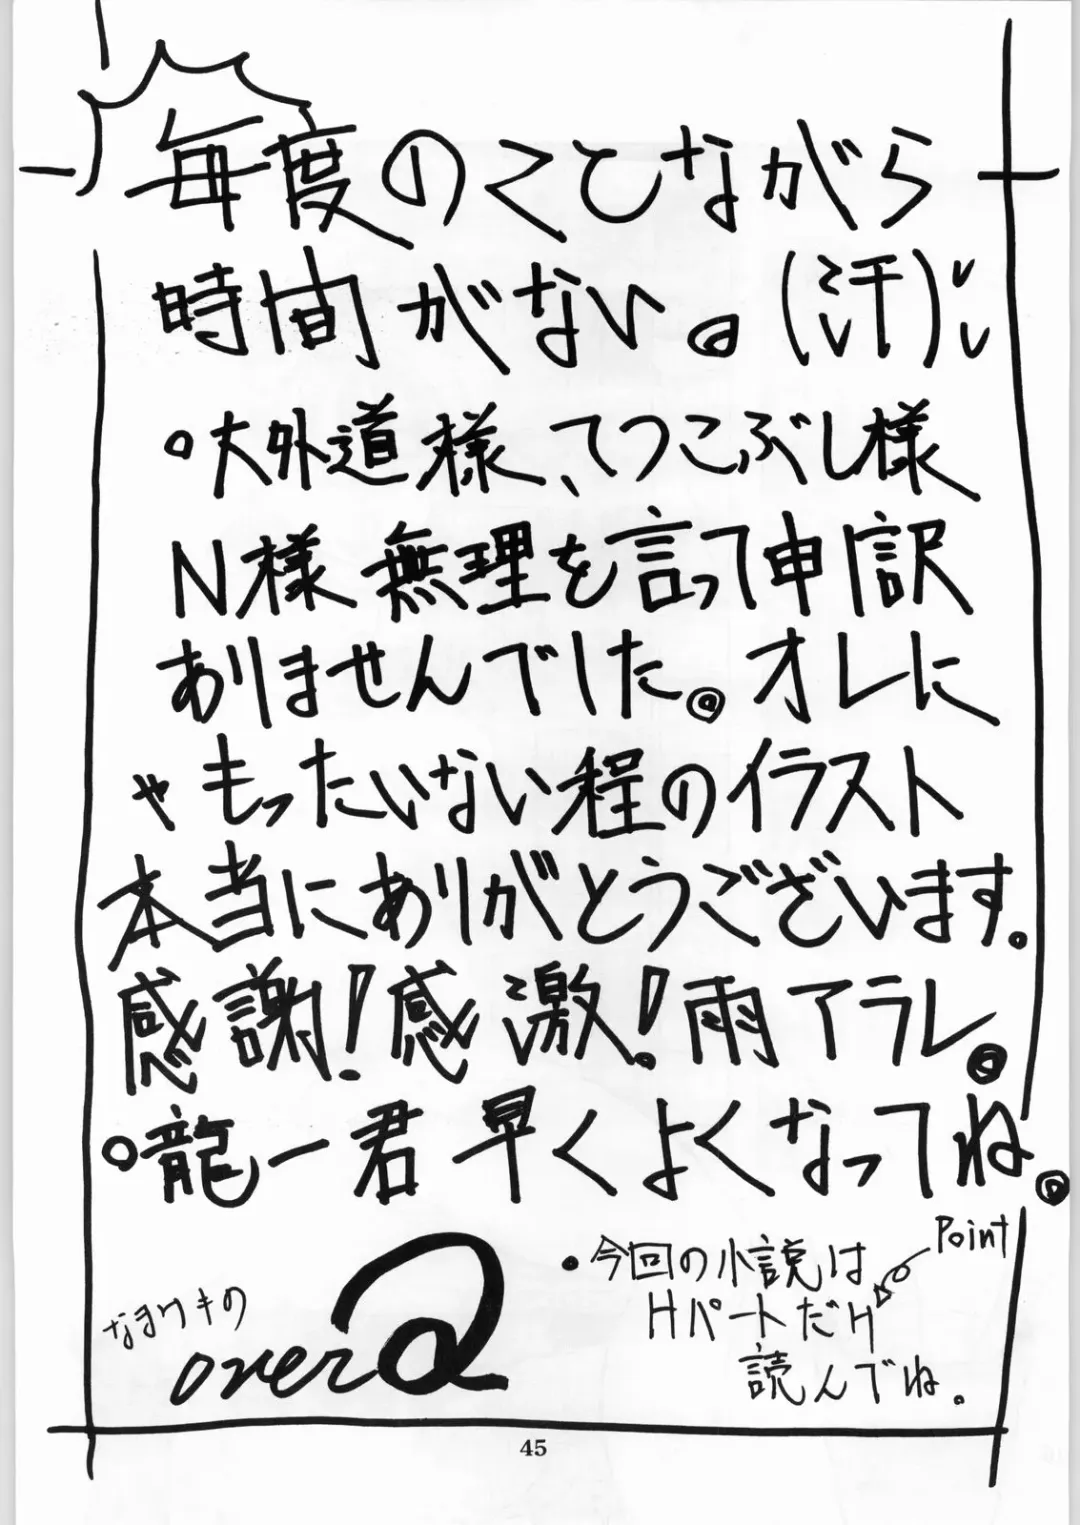 毎度のことながら
時間がない。(汗)
。大外道様、てつこぶし様
N様 無理を言って申し訳
ありませんでした。オレに
ゃもったいない程のイラスト
本当にありがとうございます。
感謝!感激!雨アラレ。
。龍一君 早くよくなってね。
Point
・今回の小説は
Hパートだけ
読んでね。
なまけきの
overQ
45